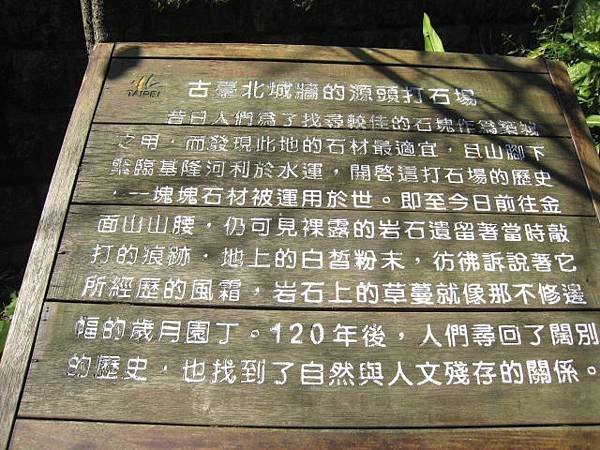 TAIPEI
古臺北城牆的源頭打石場
昔日人們為了找尋較佳的石塊作為築城
之用，而發現此地的石材最適宜，且山腳下
緊臨基隆河利於水運，開啓這打石場的歷史
，一塊塊石材被運用於世。即至今日前往金
面山山腰，仍可見裸露的岩石遺留著當時敲
打的痕跡，地上的白皙粉末，彷彿訴說著它
所經歷的風霜，岩石上的草蔓就像那不修邊
幅的歲月園丁。120年後，人們尋回了闊別
的歷史，也找到了自然與人文殘存的關係。